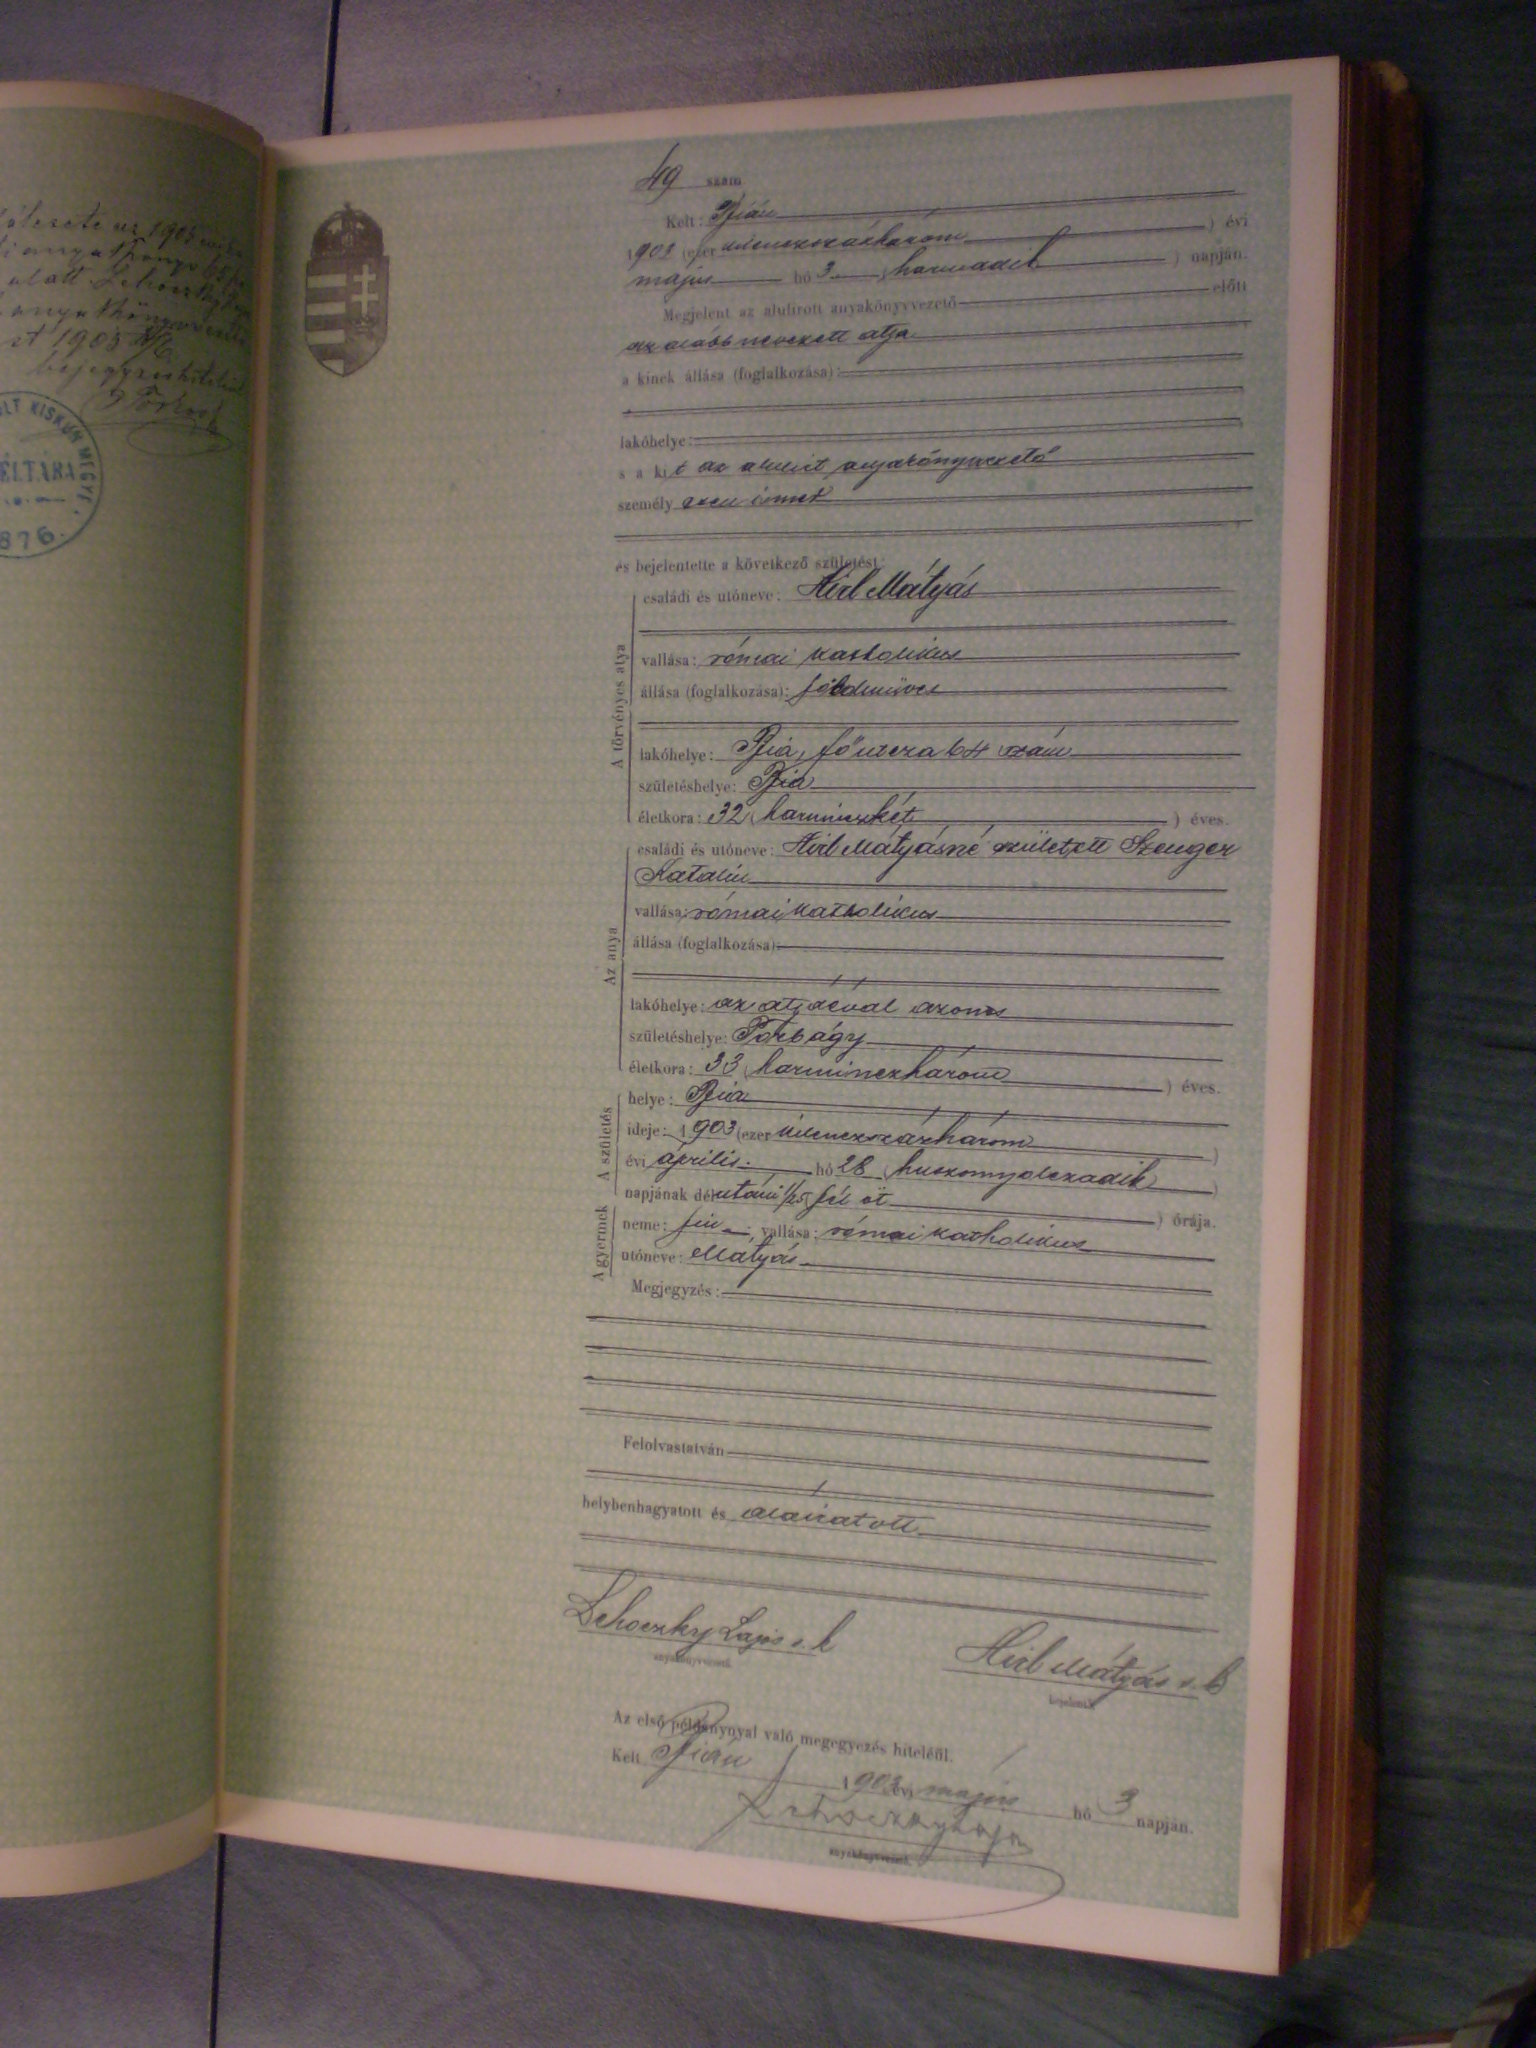 1905
1905
bejegyzés hiteléül
OLT KISKUN MEGYE
ÉLTÁRA
876.
49 szám
Kelt: Bián
1903 (ezer kilenczszázhárom ) évi
május hó 3 (harmadik ) napján.
Megjelent az alulirott anyakönyvvezető előtt
az alább nevezett atja
a kinek állása (foglalkozása):
lakóhelye:
s a kit az alulirt anyakönyvvezető
személyesen ismer
és bejelentette a következő születést:
A törvényes atya
családi és utóneve: Hirl Mátyás
vallása: római katholikus
állása (foglalkozása): földmüves
lakóhelye: Bia, főutcza 64 szám
születéshelye: Bia
életkora: 32 (harminczkét ) éves.
Az anya
családi és utóneve: Hirl Mátyásné született Szenger
Katalin
vallása: római katholikus
állása (foglalkozása):
lakóhelye: az atjáéval azonos
születéshelye: Torbágy
életkora: 33 (harminczhárom ) éves.
A születés
helye: Bia
ideje: 1903 (ezer kilenczszázhárom )
évi április hó 28 (huszonnyolczadik )
napjának délutáni 1/25 (fél öt ) órája.
A gyermek
neme: fiu ; vallása: római katholikus
utóneve: Mátyás
Megjegyzés:
Felolvastatván
helybenhagyatott és aláiratott
Lehoczky Lajos s. k
anyakönyvvezető.
Hirl Mátyás s. k
bejelentő.
Az első példánynyal való megegyezés hiteléül.
Kelt Bián 1903 évi május hó 3 napján.
Lehoczky Lajos
anyakönyvvezető.